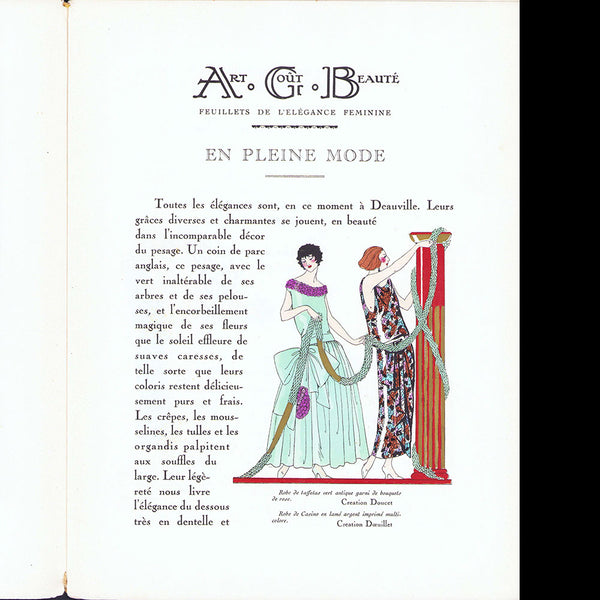 ART · GOÛT · BEAUTÉ
FEUILLETS DE L'ELÉGANCE FEMININE
EN PLEINE MODE
Toutes les élégances sont, en ce moment à Deauville. Leurs
grâces diverses et charmantes se jouent, en beauté
dans l'incomparable décor
du pesage. Un coin de parc
anglais, ce pesage, avec le
vert inaltérable de ses
arbres et de ses pelou-
ses, et l'encorbeillement
magique de ses fleurs
que le soleil effleure de
suaves caresses, de
telle sorte que leurs
coloris restent délicieu-
sement purs et frais.
Les crêpes, les mous-
selines, les tulles et les
organdis palpitent
aux souffles du
large. Leur légè-
reté nous livre
l'élégance du dessous
très en dentelle et
Robe de taffetas vert antique garni de bouquets
de rose. Création Doucet
Robe de Casino en lamé argent imprimé multi-
colore. Création Dœuillet